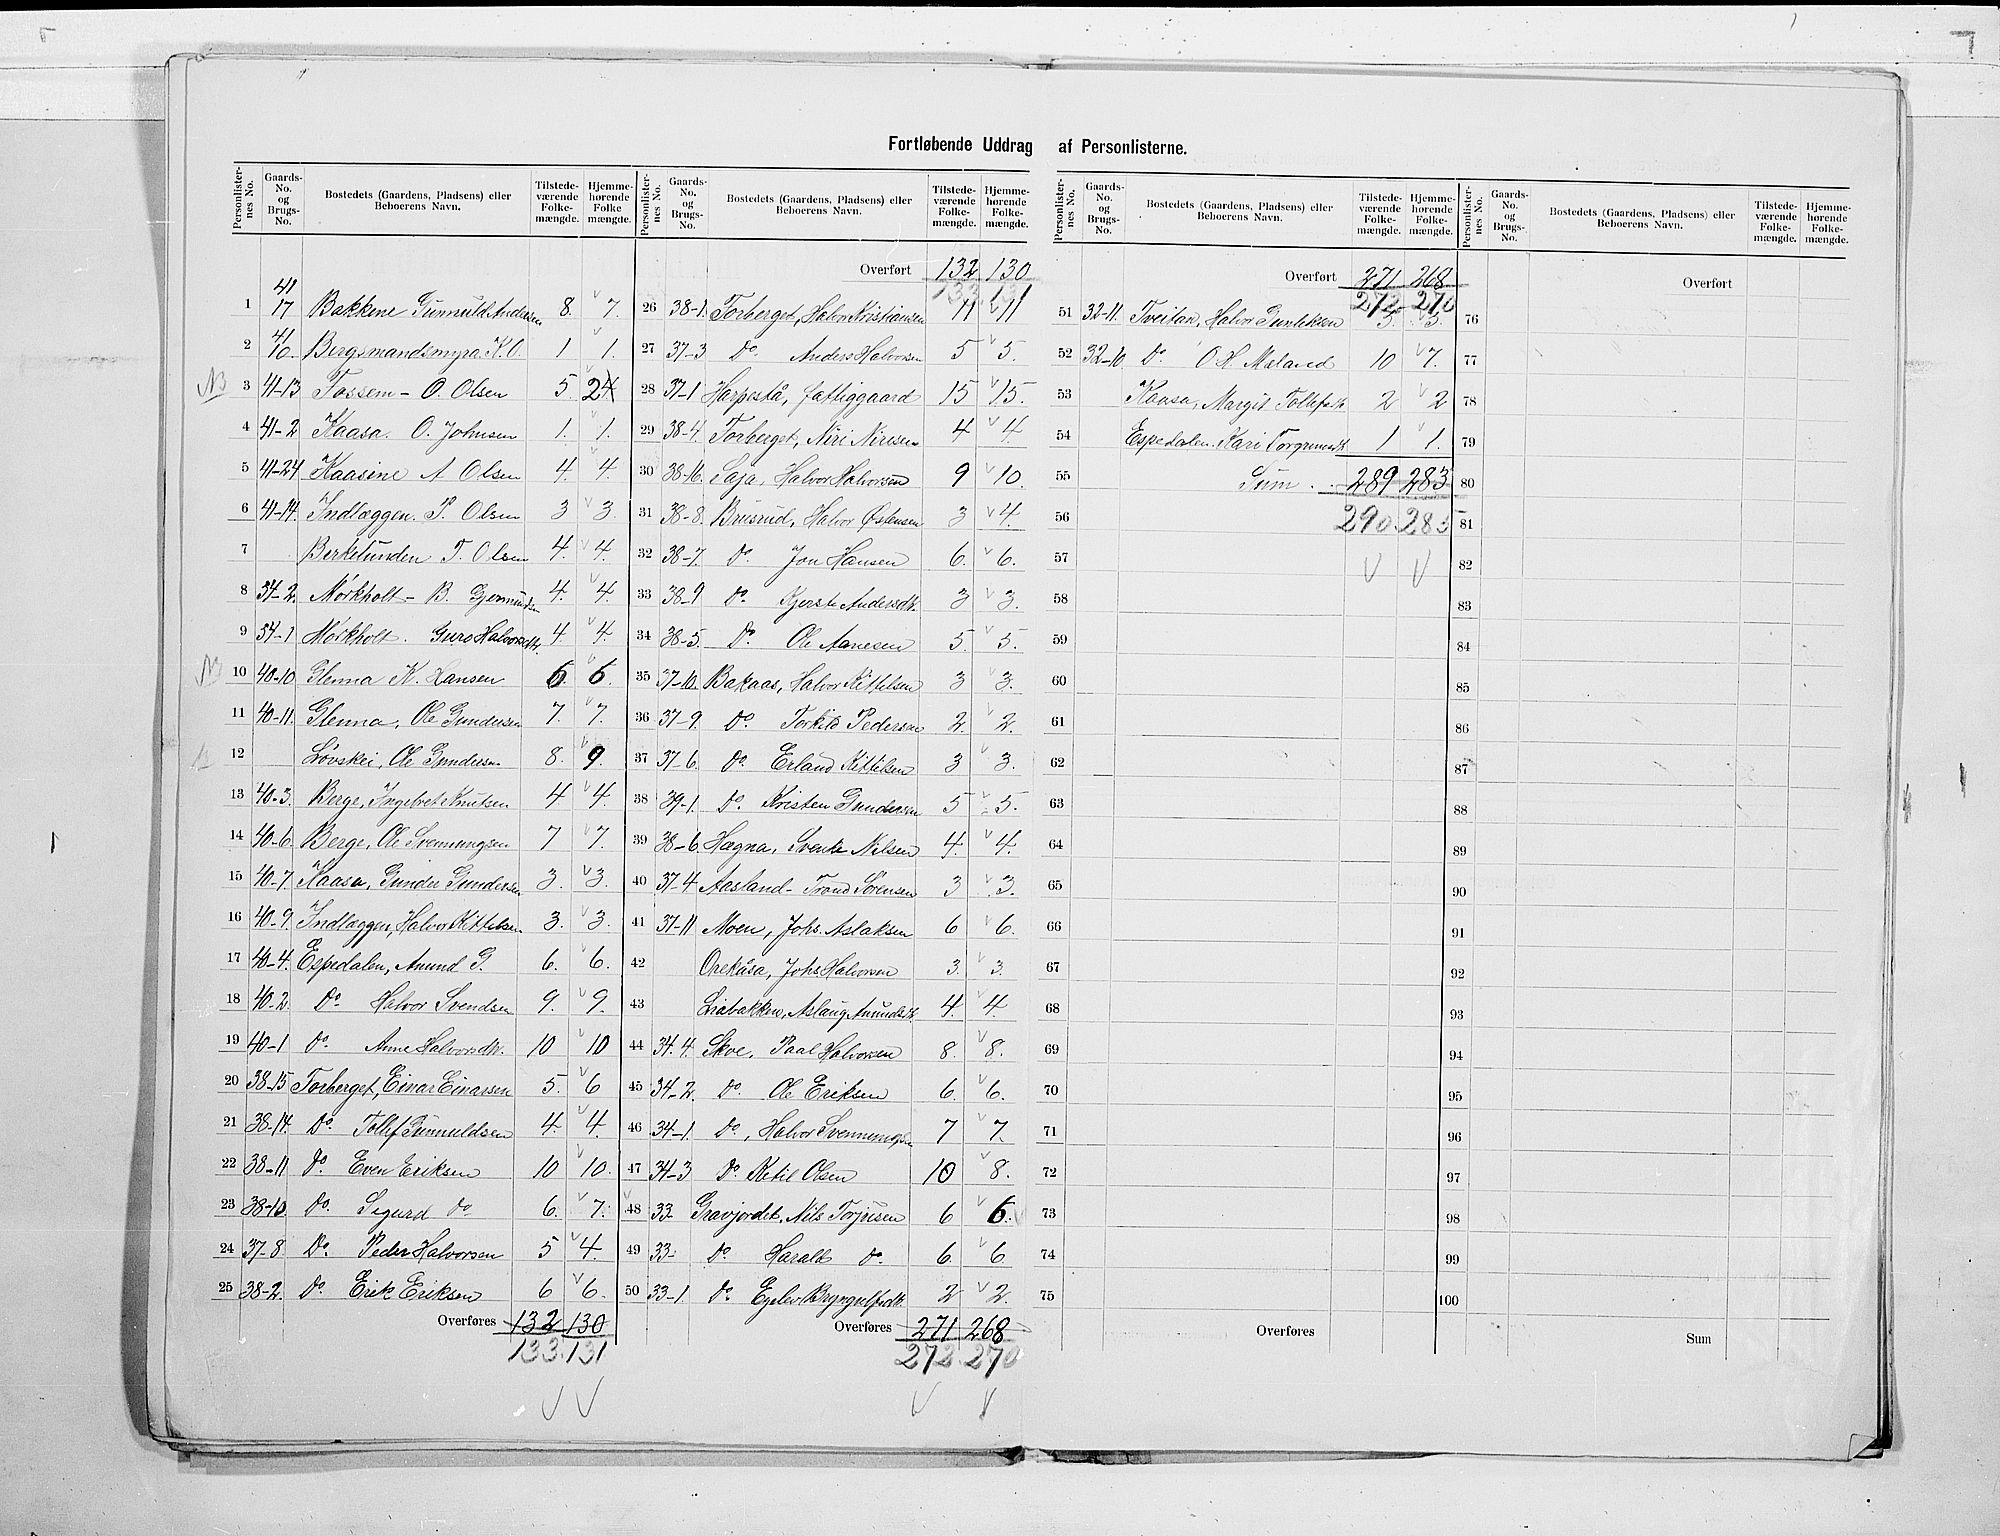 Fortløbende Uddrag af Personlisterne.
Personlister-nes No. Gaards-No. og Brugs-No. Bostedets (Gaardens, Pladsens) eller Beboerens Navn. Tilstede-værende Folke-mængde. Hjemme-hørende Folke mængde.
1 41 17 Bakkene Gunnuld Andersen 8. 7.
2 41 10 Bergsmandsmyra K.O. 1 1.
NB 3 41-13 Fossem - O. Olsen 5. 2
4 41-2 Kaasa. O. Johnsen 1. 1.
5 41-24 Kaasine A Olsen 4. 4
6 41-14. Indlæggen. P. Olsen 3 3.
7 Berkelunden T. Olsen 4. 4.
8 34-2. Mørkholt - B. Gjermundsen 4. 4.
9 34-1 Mørkholt. Guro Halvorsdtr. 4. 4.
NB 10 40-10 Glenna K. Hansen 6. 6.
11 40-11. Glenna, Ole Gundersen 7. 7.
12 Løvskei, Ole Gundersen 8. 9.
13 40-3. Berge, Ingebret Knutsen 4 4.
14 40-6. Berge, Ole Svennungsen 7 7.
15 40-7 Kaasa, Gunder Gundersen 3. 3.
16 40-9. Indlæggen, Halvor Kittelsen 3. 3.
17 40-4. Espedalen, Anund G. 6. 6.
18 40-2. Do Halvor Svendsen 9. 9.
19 40-1 Do. Anne Halvorsdtr. 10 10
20 38-15 Torberget, Einar Einarsen 5. 6
21 38-14. Do. Tollef Gunnuldsen 4. 4.
22 38-11 Do. Even Eriksen 10 10.
23 38-10. Do. Sigurd Do 6. 7.
24 37-8. Do. Peder Halvorsen 5 4.
25 38-2. Do. Erik Eriksen 6 6.
Overføres 132 130
133. 131
Personlister-nes No. Gaards-No. og Brugs-No. Bostedets (Gaardens, Pladsens) eller Beboerens Navn. Tilstede-værende Folke-mængde. Hjemme-hørende Folke-mængde.
Overført 132 130
133 131
26 38-1. Torberget, Halvor Kristiansen 11 11
27 37-3 Do. Anders Halvorsen 5 5.
28 37-1 Harpestå, fattiggaard 15 15.
29 38-4. Torberget, Niri Nirisen 4 4.
30 38-16. Saja, Halvor Halvorsen 9 10.
31 38-8. Brusrud, Halvor Østensen 3 4.
32 38-7. Do Jon Hansen 6. 6.
33 38-9 Do. Kjersti Andersdtr. 3 3.
34 38-5. Do. Ole Aanesen 5. 5.
35 37-10. Bakaas, Halvor Kittelsen 3 3.
36 37-9. Do. Torkild Pedersen 2. 2.
37 37-6. Do. Erland Kittelsen 3 3.
38 39-1. Do. Kristen Gundersen 5 5.
39 38-6 Hægna, Svenke Nilsen 4. 4.
40 37-4 Aasland - Trond Sørensen 3 3.
41 37-11 Moen, Johs. Aslaksen 6 6.
42 Orekåsa, Johs Halvorsen 3. 3.
43 Liabakken, Aslaug Anundsdtr. 4. 4.
44 34.4. Skoe, Paal Halvorsen 8. 8.
45 34-2. Do. Ole Eriksen 6. 6.
46 34-1. Do, Halvor Svennungsen 7 7.
47 34-3 Do. Ketil Olsen 10 8.
48 33- Gravjordet, Nils Torjusen 6 6.
49 33- Do. Harald Do. 6. 6
50 33-1. Do. Egelev Bryngulfsdtr. 2 2.
Overføres 271 268
272. 270
Personlister-nes No. Gaards-No. og Brugs-No. Bostedets (Gaardens, Pladsens) eller Beboerens Navn. Tilstede-værende Folke-mængde. Hjemme-hørende Folke-mængde.
Overført 271 268
272 270
51 32-11. Tveitan, Halvor Gunleksen 5. 5.
52 32-10 Do. O H. Meland 10 7.
53 Kaasa, Margit Tollefsdtr 2 2
54 Espedalen. Kari Torgrimsdtr. 1 1.
55 Sum . . 289 283
56 290. 285
57
58
59
60
61
62
63
64
65
66
67
68
69
70
71
72
73
74
75
Overføres
Personlister-nes No. Gaards-No. og Brugs-No. Bostedets (Gaardens, Pladsens) eller Beboerens Navn. Tilstede-værende Folke-mængde. Hjemme-hørende Folke-mængde.
Overført
76
77
78
79
80
81
82
83
84
85
86
87
88
89
90
91
92
93
94
95
96
97
98
99
100
Sum